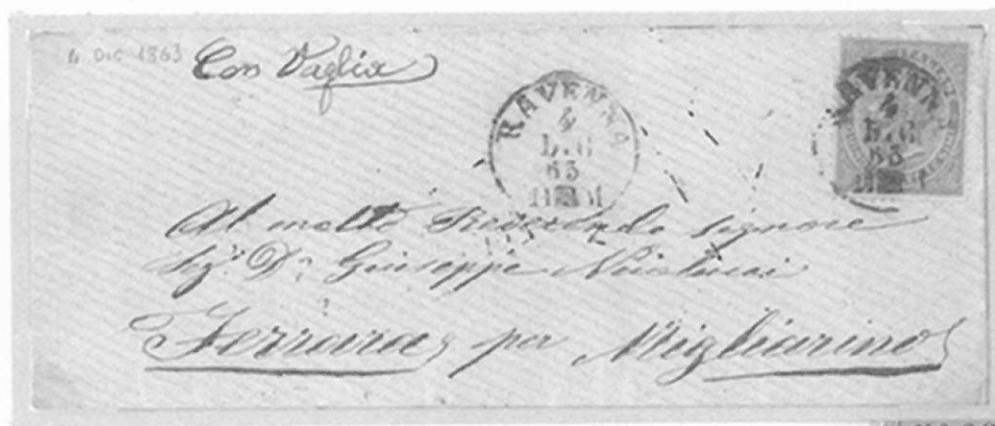 4 DIC 1863
Con Vaglia
RAVENNA
4
DIC
63
11 M
RAVENNA
4
DIC
63
11 M
Al molto Reverendo signore
Sig.r D.n Giuseppe
Ferrara per Migliarino